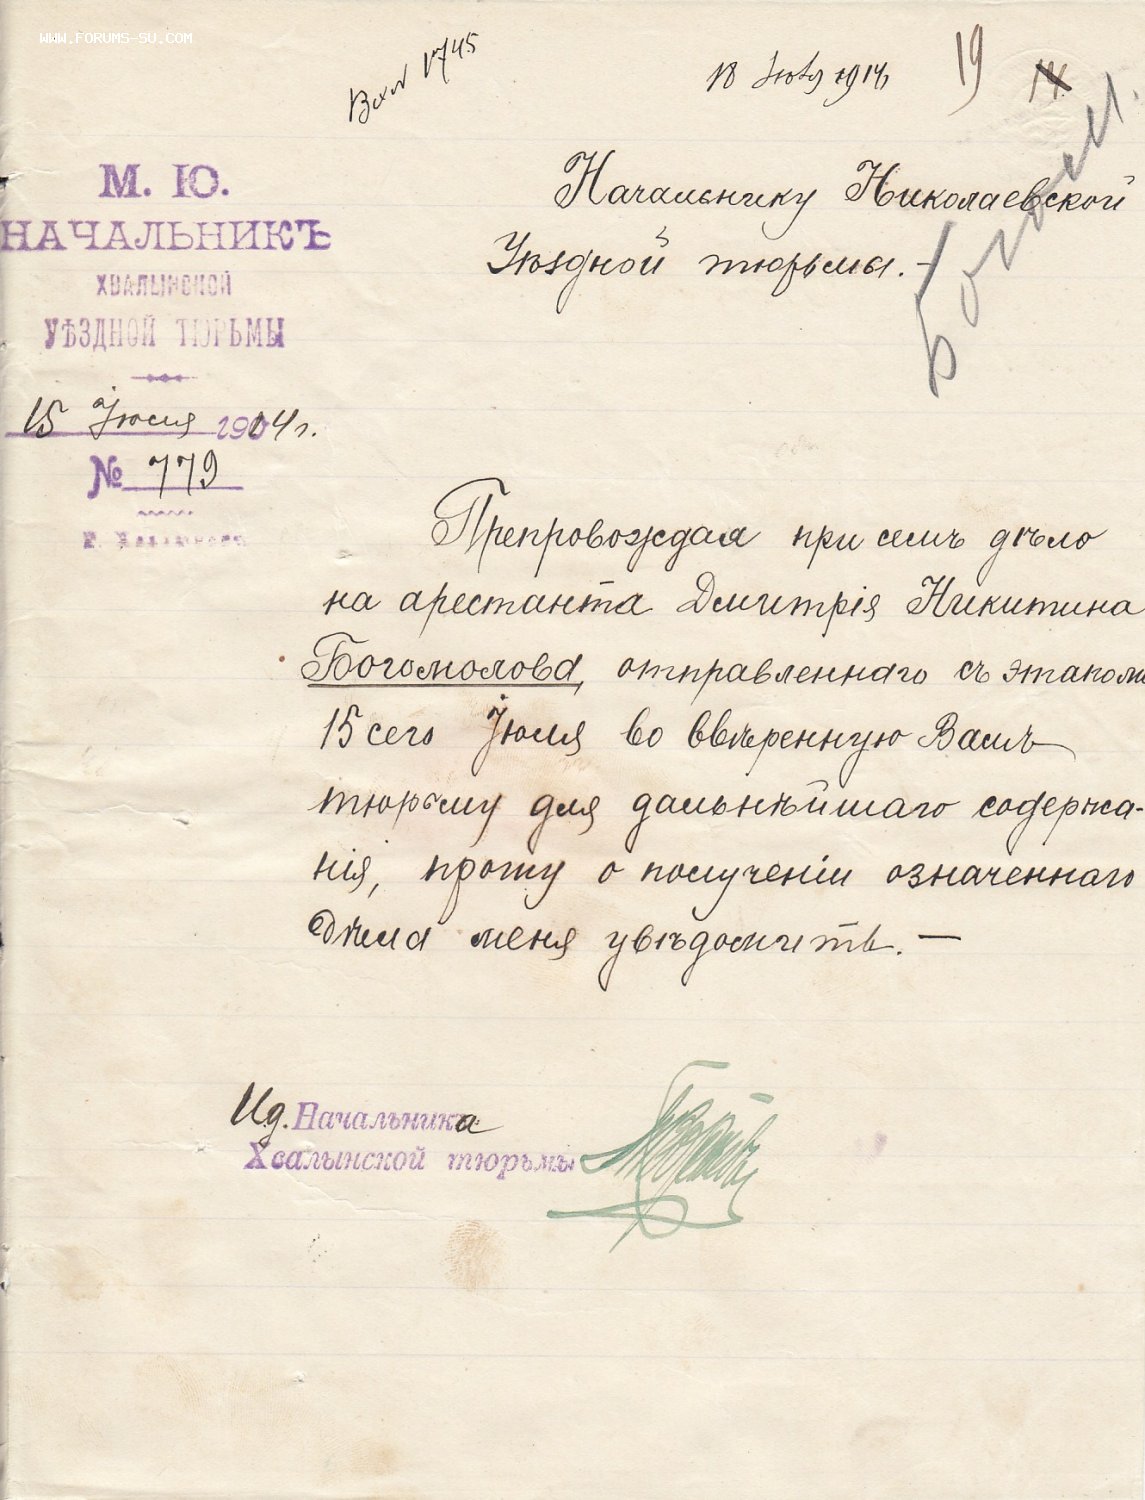 WWW.FORUMS-SU.COM
Вх № 1745
18 Июля 1914
19
14.
Богомол.
М. Ю.
НАЧАЛЬНИКЪ
ХВАЛЫНСКОЙ
УѢЗДНОЙ ТЮРЬМЫ
15 Июля 1914 г.
№ 779
Г. Хвалынскъ
Начальнику Николаевской
Уѣздной тюрьмы. —
Препровождая при семъ дѣло
на арестанта Дмитрія Никитина
Богомолова, отправленнаго съ этапомъ
15 сего Июля во ввѣренную Вамъ
тюрьму для дальнѣйшаго содержа-
нія, прошу о полученіи означеннаго
Дѣла меня увѣдомить. —
И.д. Начальника
Хвалынской тюрьмы